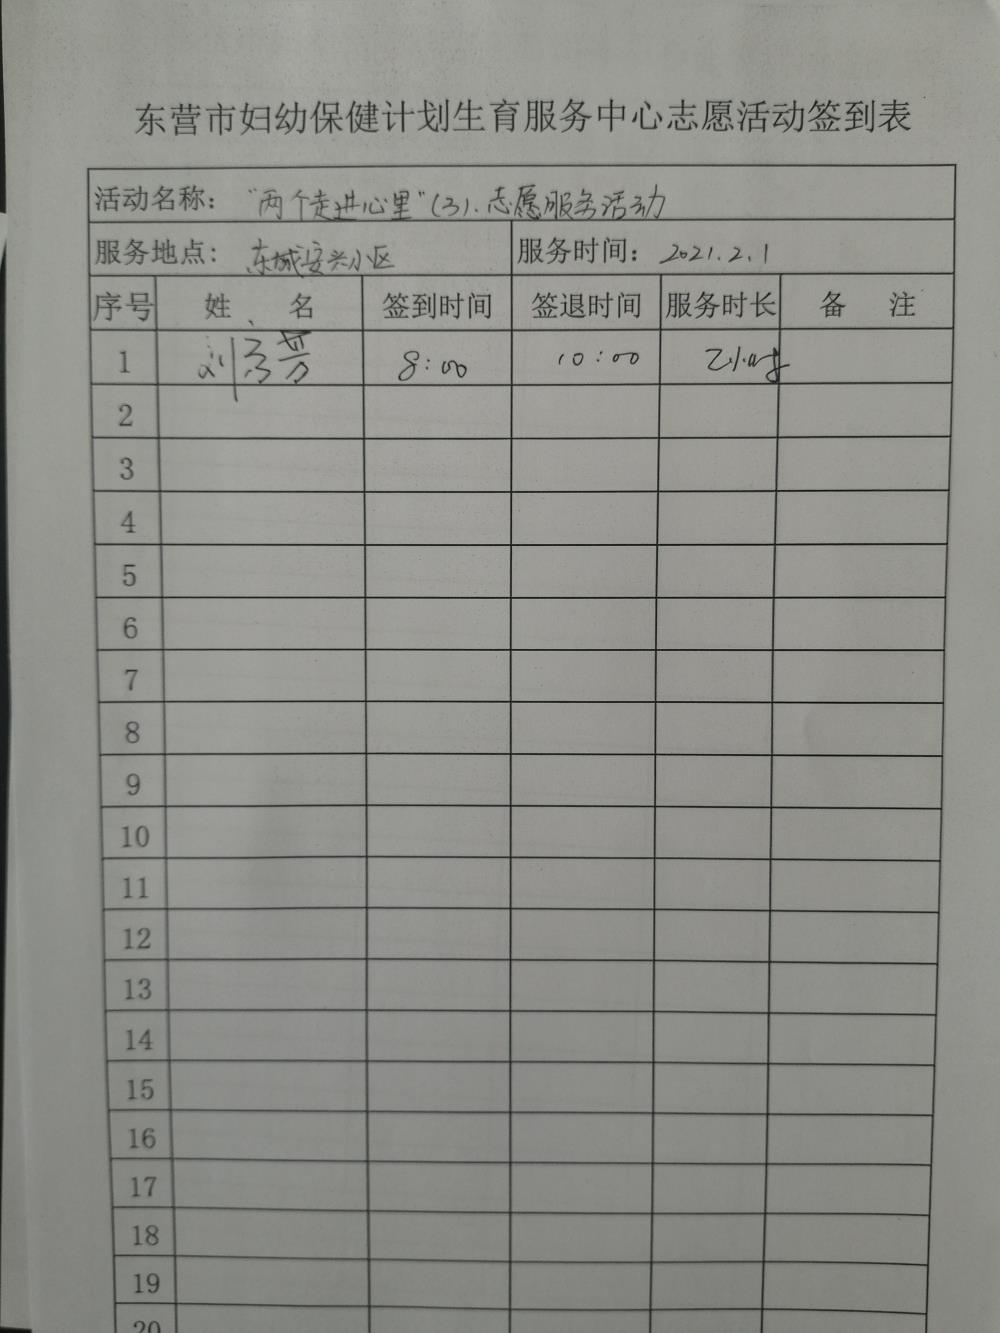 东营市妇幼保健计划生育服务中心志愿活动签到表
活动名称： “两个走进心里”(3).志愿服务活动
服务地点： 东城安兴小区 服务时间： 2021.2.1
序号 姓 名 签到时间 签退时间 服务时长 备 注
1 刘 芳 8:00 10:00 2小时
2
3
4
5
6
7
8
9
10
11
12
13
14
15
16
17
18
19
20